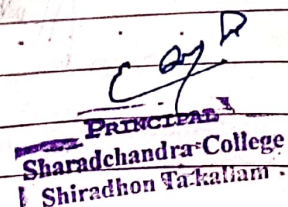 PRINCIPAL
Sharadchandra College
Shiradhon Ta.kallam.